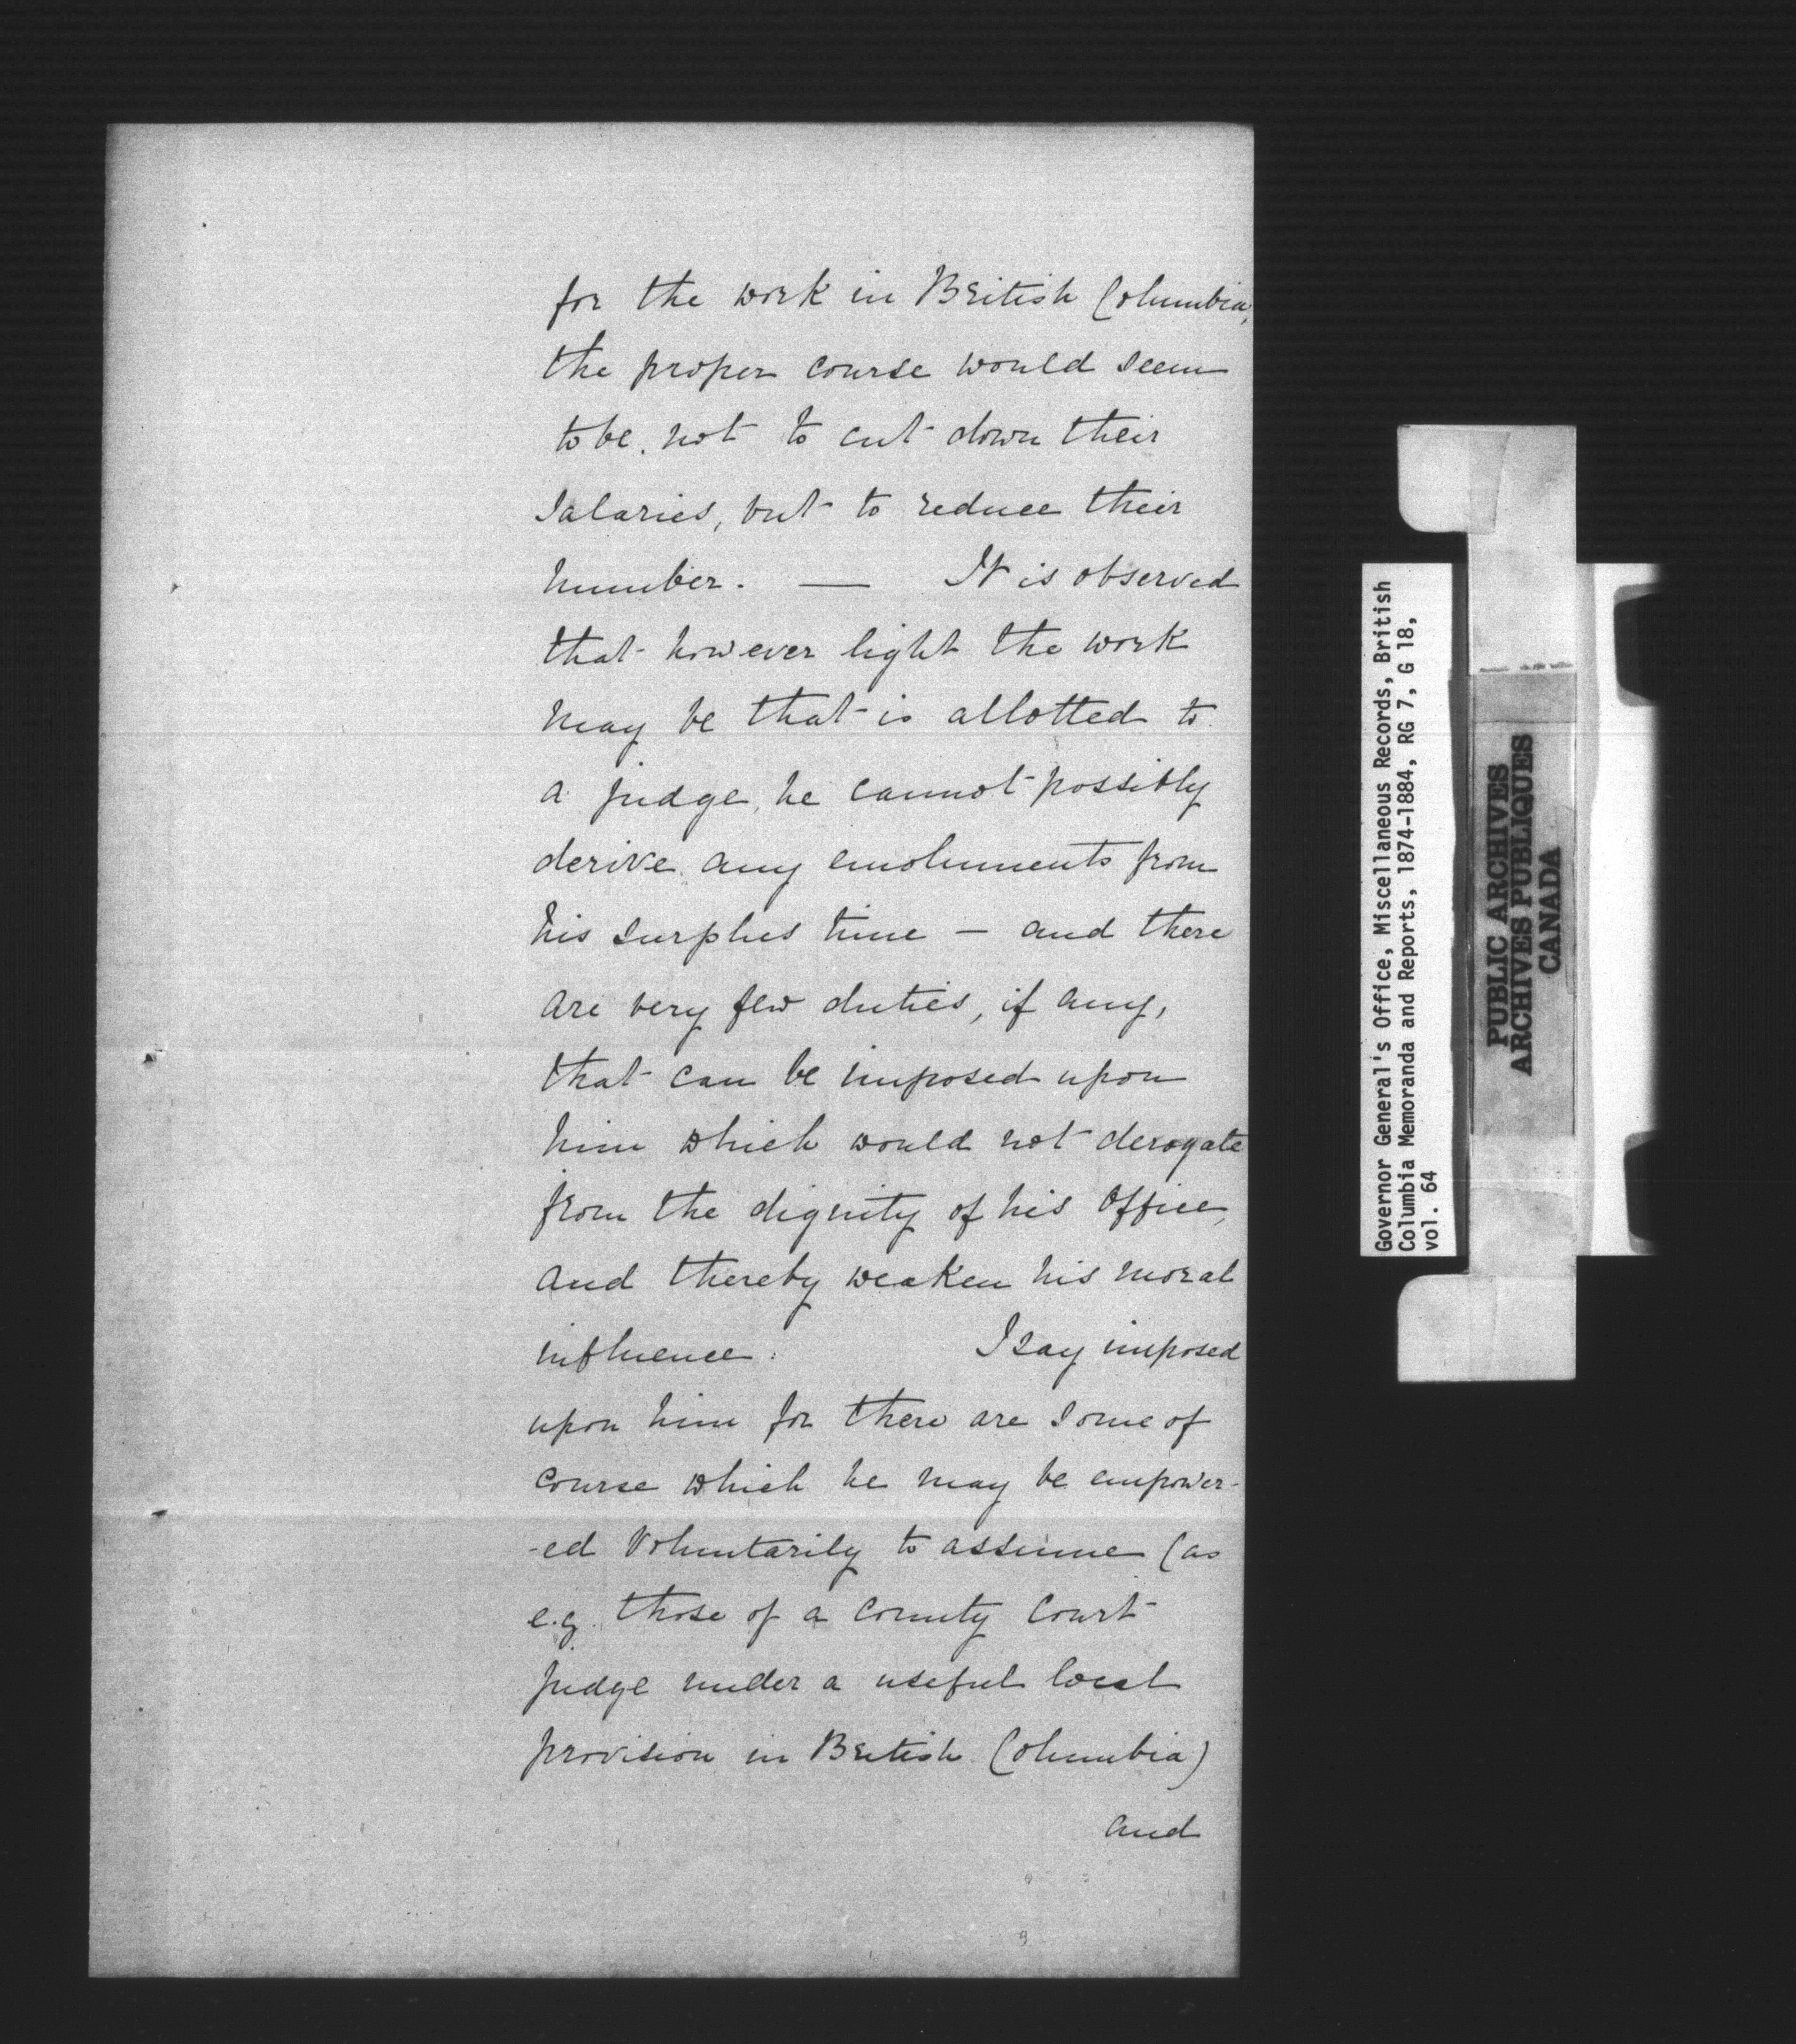 for the work in British Columbia,
the proper course would seem
to be, not to cut down their
salaries, but to reduce their
number. — It is observed
that however light the work
may be that is allotted to
a judge, he cannot possibly
derive any emoluments from
his surplus time — and there
are very few duties, if any,
that can be imposed upon
him which would not derogate
from the dignity of his Office,
and thereby weaken his moral
influence. I say imposed
upon him for there are some of
course which he may be empower-
-ed voluntarily to assume (as
e.g. those of a County Court
judge under a useful local
provision in British Columbia)
and
Governor General's Office, Miscellaneous Records, British
Columbia Memoranda and Reports, 1874-1884, RG 7, G 18,
vol. 64
PUBLIC ARCHIVES
ARCHIVES PUBLIQUES
CANADA